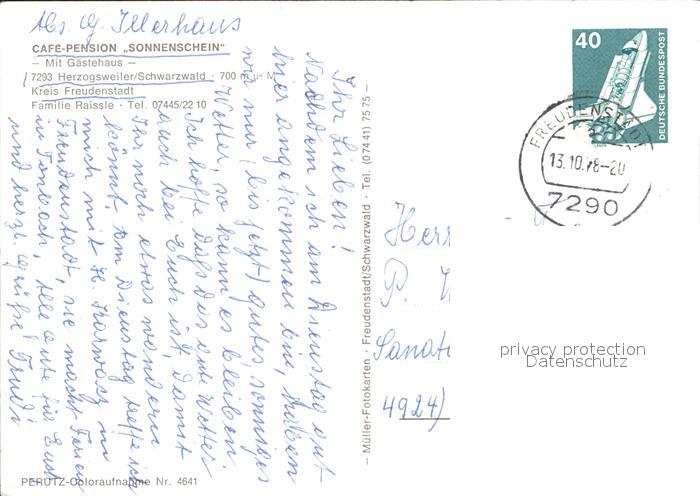 Abs. G. Illerhaus
CAFÉ-PENSION „SONNENSCHEIN"
– Mit Gästehaus –
7293 Herzogsweiler/Schwarzwald · 700 m ü. M.
Kreis Freudenstadt
Familie Raissle · Tel. 07445/22 10
Ihr Lieben!
Nachdem ich am Dienstag gut
hier angekommen bin, haben
wir nur (bis jetzt) gutes, sonniges
Wetter, so kann es bleiben.
Ich hoffe daß das gute Wetter
auch bei Euch ist, damit
Ihr noch etwas wandern
könnt. Am Dienstag treffe ich
mich mit H. in
Freudenstadt, sie macht Ferien
in Tonbach, alles gute für Euch
und herzl. Grüße Trudi
PERUTZ-Coloraufnahme Nr. 4641
– Müller-Fotokarten · Freudenstadt/Schwarzwald · Tel. (0 74 41) 75 75 –
40
DEUTSCHE BUNDESPOST
FREUDENSTADT
13.10.78-20
7290
Herr
P.
Sanat
4924)
privacy protection
Datenschutz